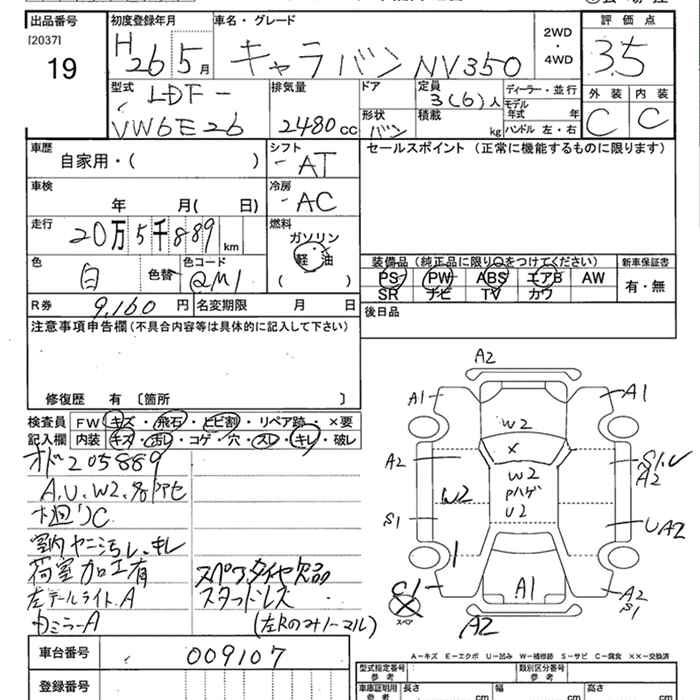 出品番号 初度登録年月 車名・グレード 評価点
[2037] 19
H 26 5月
キャラバン NV350
2WD・4WD
3.5
型式 排気量 ドア 定員 ディーラー・並行 外装 内装
LDF-
VW6E26
2480 cc
3(6)人
モデル年式 年
形状 バン 積載 kg ハンドル 左・右
C C
車歴 シフト セールスポイント (正常に機能するものに限ります)
自家用・( )
AT
車検 冷房
年 月( 日)
AC
走行 燃料
20万5千889 km
ガソリン
軽油
( )
色 色替 色コード
白 QM1
装備品 (純正品に限り○をつけてください) 新車保証書
PS PW ABS エアB AW 有・無
SR ナビ TV カワ
R券 9,160 円 名変期限 月 日
後日品
注意事項申告欄(不具合内容等は具体的に記入して下さい)
修復歴 有 〔箇所 〕
検査員記入欄
FW キズ・飛石・とビ割・リペア跡・×要
内装 キズ・汚レ・コゲ・穴・スレ・キレ・破レ
オド205889
A.U.W2.
C
室内ヤニ汚レ、キレ
荷室加工有 スペアタイヤ欠品
左テールライトA スタッドレス
ミラーA (左Rのみノーマル)
A2
A1 A1
W2
×
A2 W2 W2 S1.U A2
Pハゲ
U2
S1 UA2
A1 A2 S1
スペア
A2
A-キズ E-エクボ U-凹み W-補修跡 S-サビ C-腐食 ××-交換済
車台番号 009107
登録番号
型式指定番号 参考 類別区分番号 参考
車庫証明用 参考 長さ cm 幅 cm 高さ cm